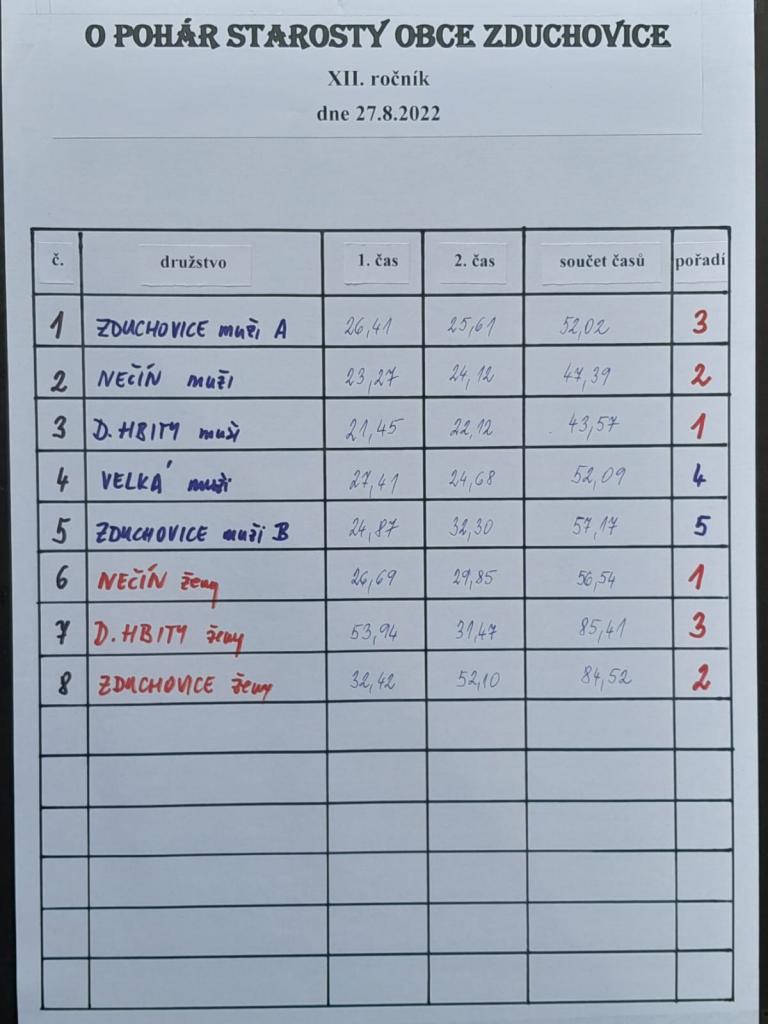 O POHÁR STAROSTY OBCE ZDUCHOVICE
XII. ročník
dne 27.8.2022
č. družstvo 1. čas 2. čas součet časů pořadí
1 ZDUCHOVICE muži A 26,41 25,61 52,02 3
2 NEČÍN muži 23,27 24,12 47,39 2
3 D. HBITY muži 21,45 22,12 43,57 1
4 VELKÁ muži 27,41 24,68 52,09 4
5 ZDUCHOVICE muži B 24,87 32,30 57,17 5
6 NEČÍN ženy 26,69 29,85 56,54 1
7 D. HBITY ženy 53,94 31,47 85,41 3
8 ZDUCHOVICE ženy 32,42 52,10 84,52 2